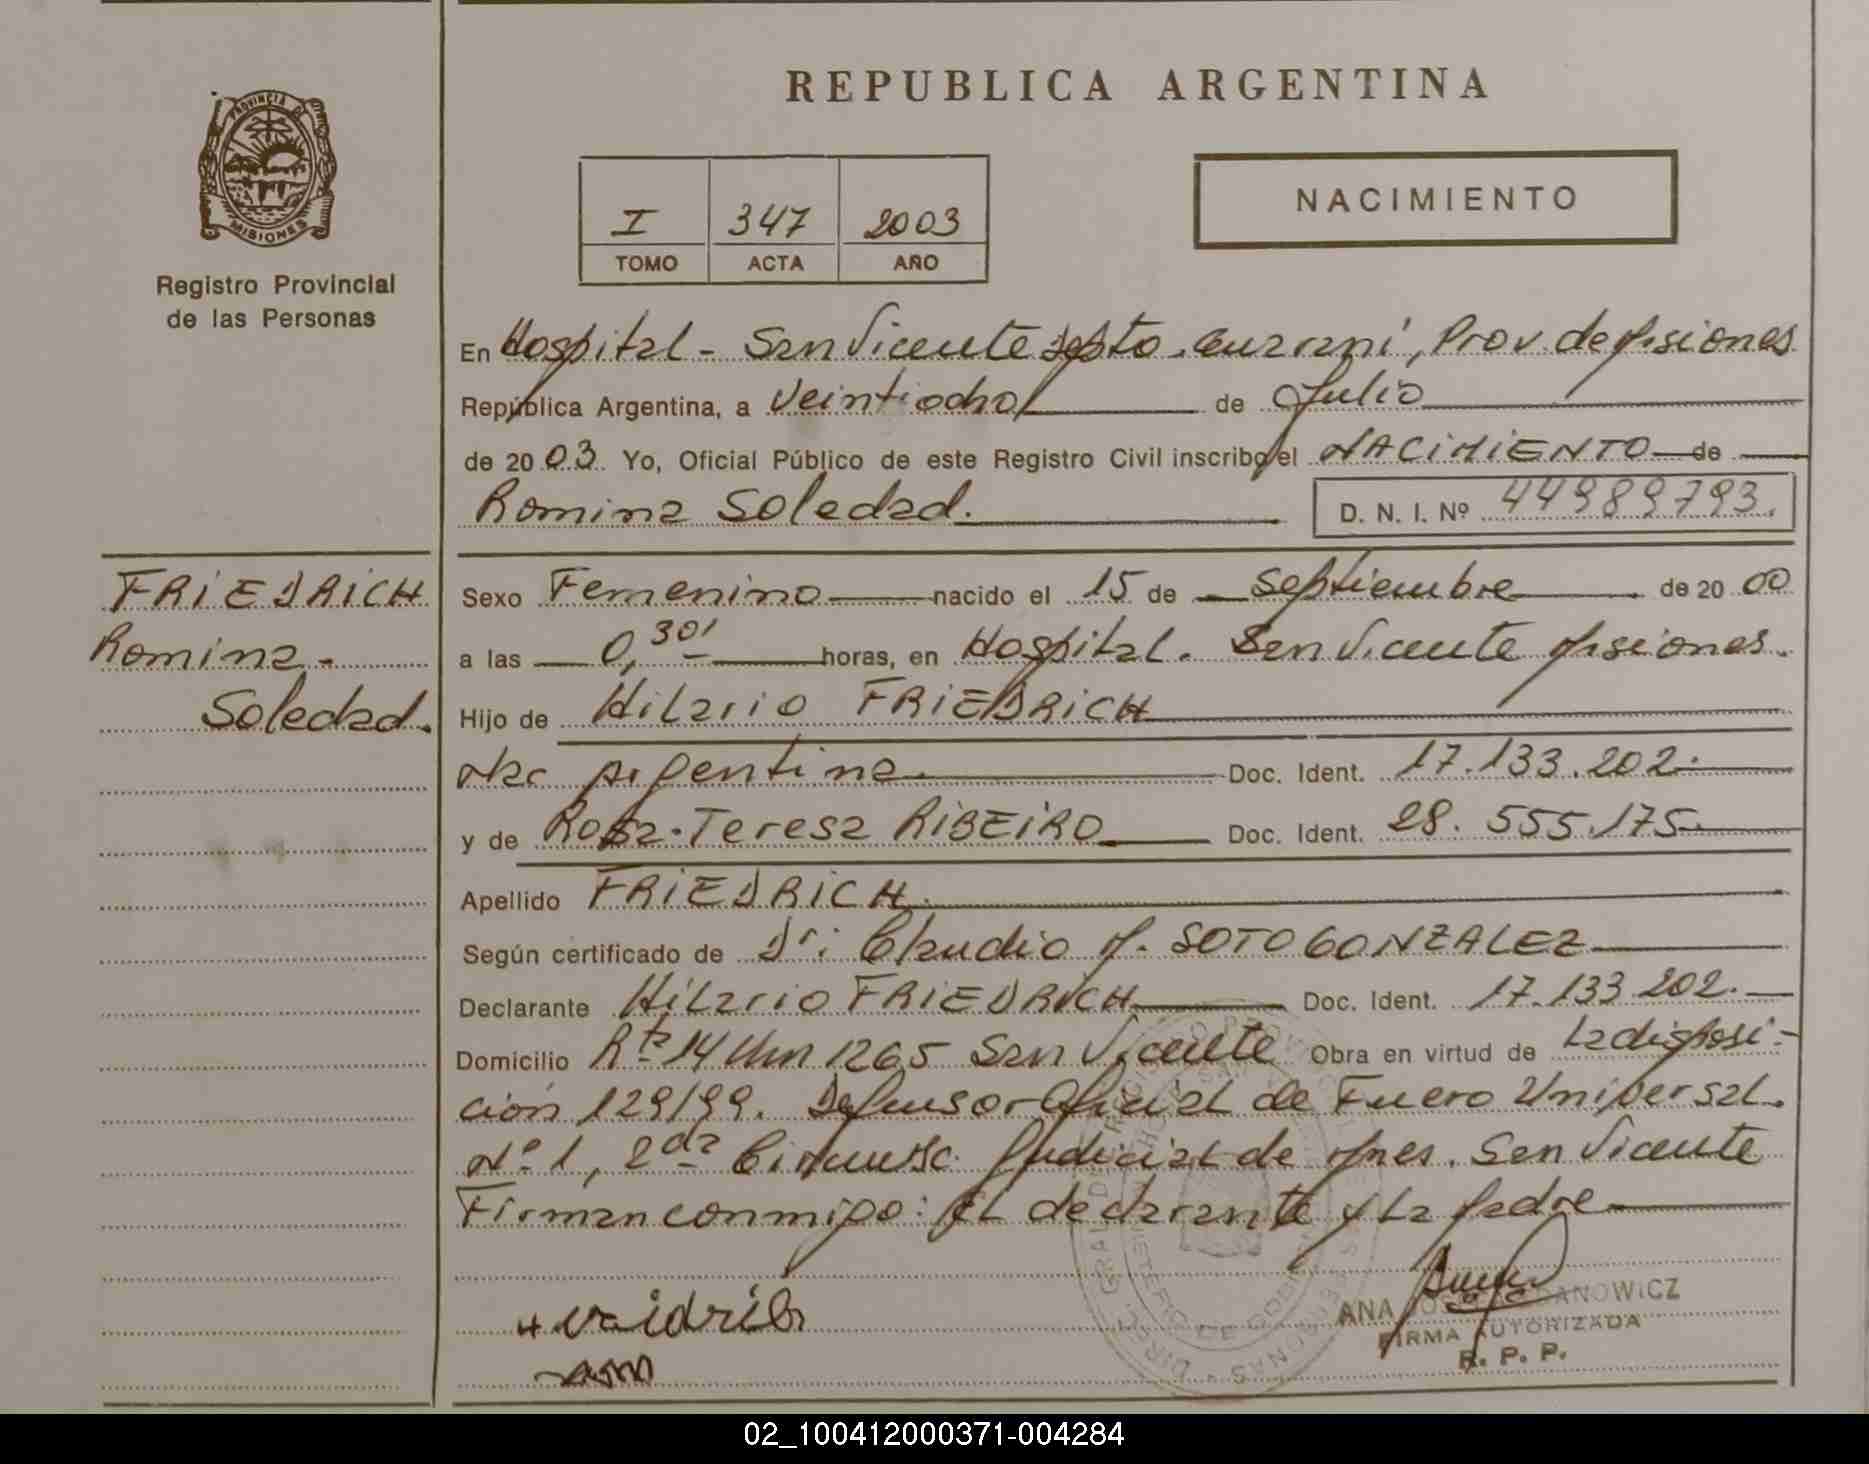 PROVINCIA DE
MISIONES
Registro Provincial
de las Personas
FRIEDRICH
Romina
Soledad.
REPUBLICA ARGENTINA
I 347 2003
TOMO ACTA AÑO
NACIMIENTO
En Hospital - San Vicente Dpto. Guaraní, Prov. de Misiones
República Argentina, a veintiocho de Julio
de 2003. Yo, Oficial Público de este Registro Civil inscribo el NACIMIENTO de
Romina Soledad. D. N. I. Nº 44989793.
Sexo Femenino nacido el 15 de Septiembre de 2000
a las 0,30' horas, en Hospital. San Vicente Misiones.
Hijo de Hilario FRIEDRICH
Nac Argentina. Doc. Ident. 17.133.202.
y de Rosa Teresa RIBEIRO Doc. Ident. 28.555.175
Apellido FRIEDRICH.
Según certificado de Dr: Claudio M. SOTO GONZALEZ
Declarante Hilario FRIEDRICH Doc. Ident. 17.133.202.
Domicilio Rta 14 Km 1265 San Vicente Obra en virtud de La disposi-
ción 129/99. Defensor Oficial de Fuero Universal.
Nº 1, 2da Circunsc. Judicial de Mnes. San Vicente
Firman conmigo: El declarante y La Madre
ANA
FIRMA AUTORIZADA
R. P. P.
02_100412000371-004284